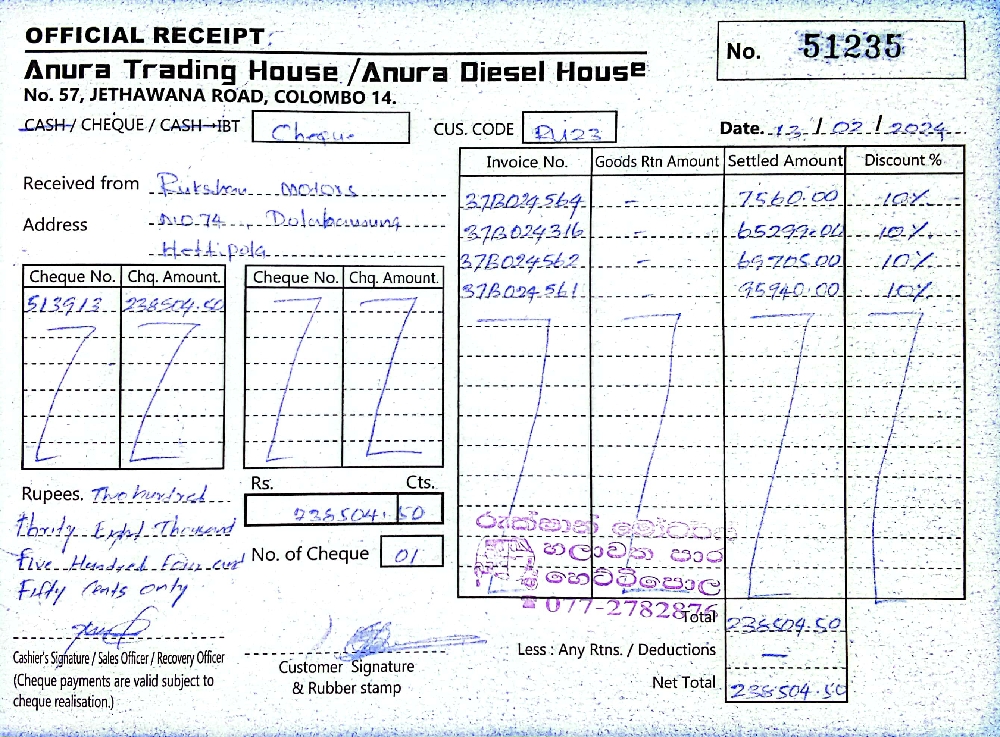 OFFICIAL RECEIPT
No. 51235
Anura Trading House / Anura Diesel House
No. 57, JETHAWANA ROAD, COLOMBO 14.
CASH / CHEQUE / CASH IBT Cheque
CUS. CODE RU23
Date. 13 / 02 / 2024
Received from Rukshan Motors
Address NO.74,
Hettipola
Invoice No. Goods Rtn Amount Settled Amount Discount %
37B024564 - 7560.00 10%
37B024316 - 65299.00 10%
37B024562 - 69705.00 10%
37B024561 - 95940.00 10%
Cheque No. Chq. Amount. Cheque No. Chq. Amount.
513913 238504.50
Rupees. Two hundred
thirty Eight Thousand
Five Hundred Four and
Fifty Cents only
Rs. Cts.
238504.50
No. of Cheque 01
රුක්ෂාන් මෝටර්ස්
හලාවත පාර
හෙට්ටිපොල
☎ 077-2782876
Total 238504.50
Less : Any Rtns. / Deductions —
Net Total 238504.50
Cashier's Signature / Sales Officer / Recovery Officer
(Cheque payments are valid subject to
cheque realisation.)
Customer Signature
& Rubber stamp